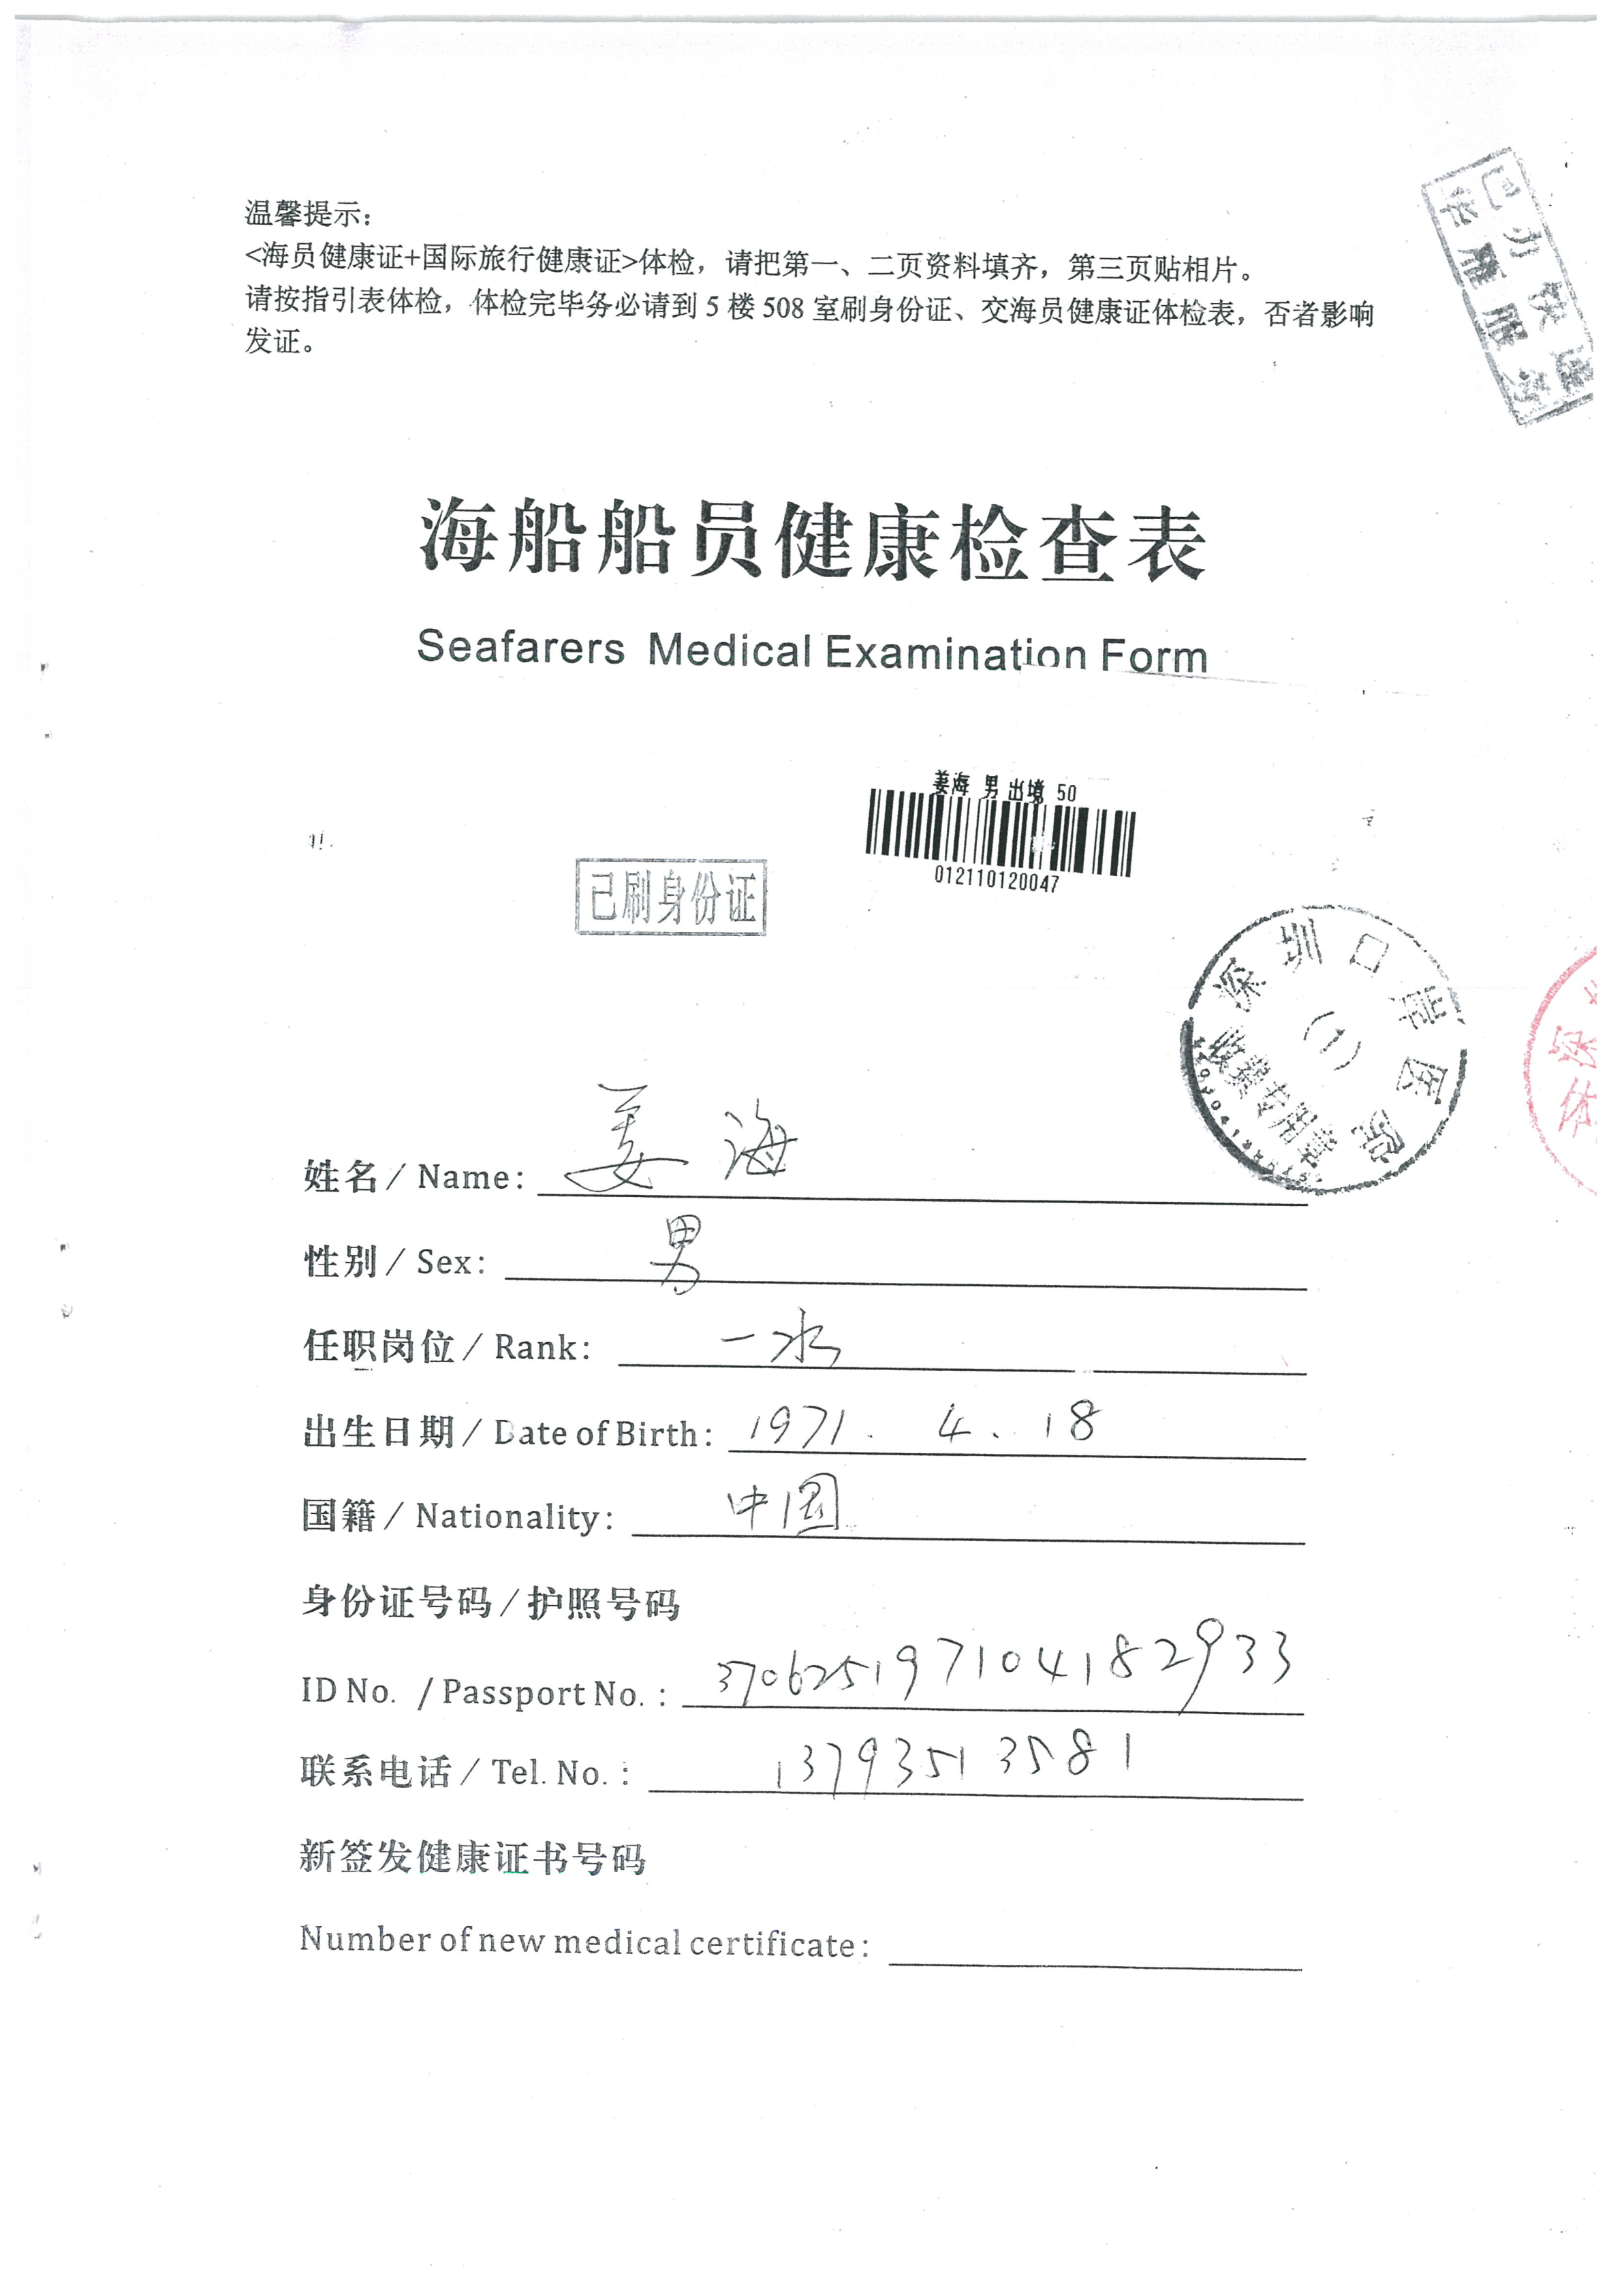 温馨提示：
<海员健康证+国际旅行健康证>体检，请把第一、二页资料填齐，第三页贴相片。
请按指引表体检，体检完毕务必请到 5 楼 508 室刷身份证、交海员健康证体检表，否者影响
发证。
已办快递
华雁服务
海船船员健康检查表
Seafarers Medical Examination Form
姜海 男 出境 50
012110120047
已刷身份证
深圳口岸医院
(1)
收费专用章
姓名 / Name: 姜海
性别 / Sex: 男
任职岗位 / Rank: 一水
出生日期 / Date of Birth: 1971. 4. 18
国籍 / Nationality: 中国
身份证号码 / 护照号码
ID No. / Passport No. : 370625197104182933
联系电话 / Tel. No. : 13793513581
新签发健康证书号码
Number of new medical certificate: